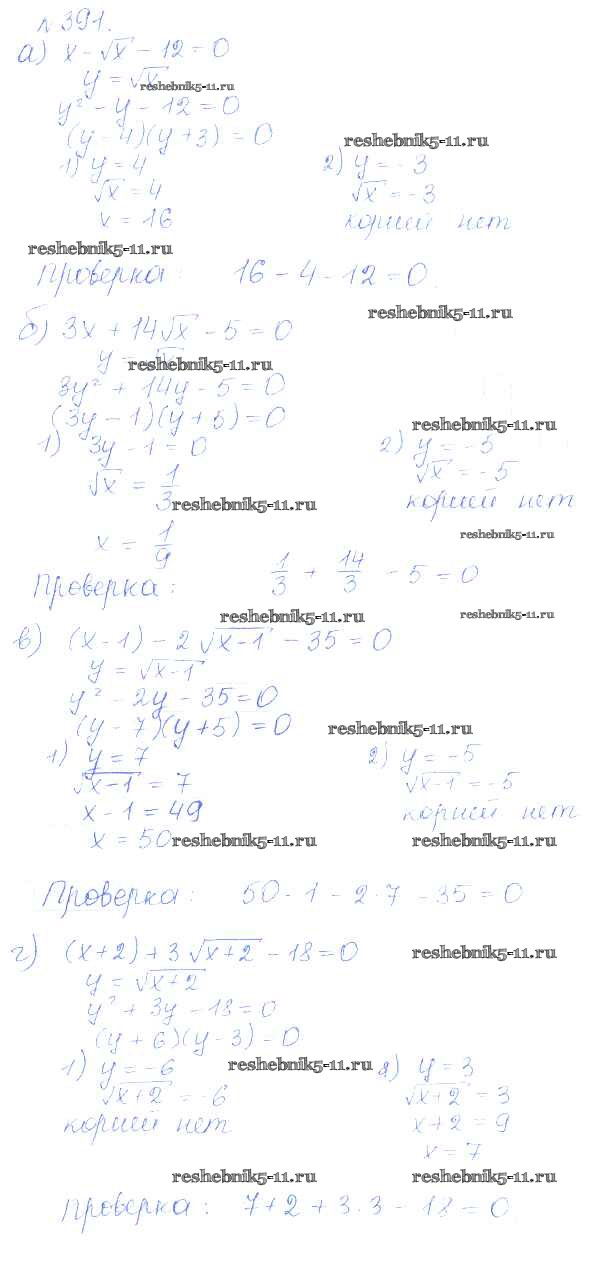 № 391.
а) x - √x - 12 = 0
y = √x reshebnik5-11.ru
y² - y - 12 = 0
(y - 4)(y + 3) = 0 reshebnik5-11.ru
1) y = 4 2) y = -3
√x = 4 √x = -3
x = 16 корней нет
reshebnik5-11.ru
Проверка: 16 - 4 - 12 = 0.
reshebnik5-11.ru
б) 3x + 14√x - 5 = 0
y = √x reshebnik5-11.ru
3y² + 14y - 5 = 0
(3y - 1)(y + 5) = 0 reshebnik5-11.ru
1) 3y - 1 = 0 2) y = -5
√x = 1/3 √x = -5
reshebnik5-11.ru корней нет
x = 1/9 reshebnik5-11.ru
Проверка: 1/3 + 14/3 - 5 = 0
reshebnik5-11.ru reshebnik5-11.ru
в) (x-1) - 2√x-1 - 35 = 0
y = √x-1
y² - 2y - 35 = 0
(y - 7)(y + 5) = 0 reshebnik5-11.ru
1) y = 7 2) y = -5
√x-1 = 7 √x-1 = -5
x - 1 = 49 корней нет
x = 50 reshebnik5-11.ru reshebnik5-11.ru
Проверка: 50 - 1 - 2·7 - 35 = 0
г) (x+2) + 3√x+2 - 18 = 0 reshebnik5-11.ru
y = √x+2
y² + 3y - 18 = 0
(y + 6)(y - 3) - 0
1) y = -6 reshebnik5-11.ru 2) y = 3
√x+2 = -6 √x+2 = 3
корней нет x + 2 = 9
x = 7
reshebnik5-11.ru reshebnik5-11.ru
Проверка: 7 + 2 + 3·3 - 18 = 0